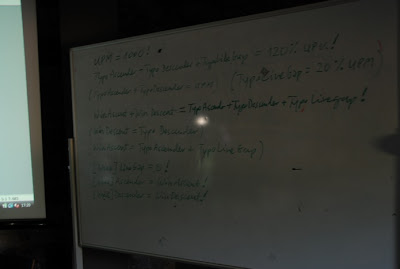 UPM = 1000!
TypoAscender + TypoDescender + TypoLineGap = 120% UPM!
(TypoAscender + TypoDescender = UPM) (TypoLineGap = 20% UPM)
WinAscent + WinDescent = TypoAscender + TypoDescender + TypoLinegap!
WinDescent = TypoDescender
WinAscent = TypoAscender + TypoLineGap)
[hhea] LineGap = 0!
[hhea] Ascender = WinAscent!
[hhea] Descender = WinDescent!